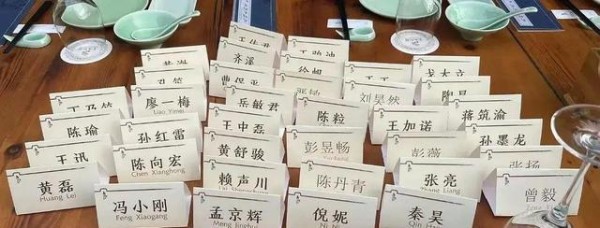 齐溪
徐峥
戈大立
孔笙
曹保平
王乃竺
廖一梅
岳敏君
刘昊然
陶昆
陈瑜
孙红雷
王中磊
陈粒
王加诺
蒋筑渝
王讯
陈向宏
Chen Xianghong
黄舒骏
彭昱畅
彭薇
孙墨龙
黄磊
Huang Lei
赖声川
陈丹青
张亮
张杨
冯小刚
Feng Xiaogang
孟京辉
Meng Jinghui
倪妮
Ni Ni
秦昊
Qin Hao
曾毅